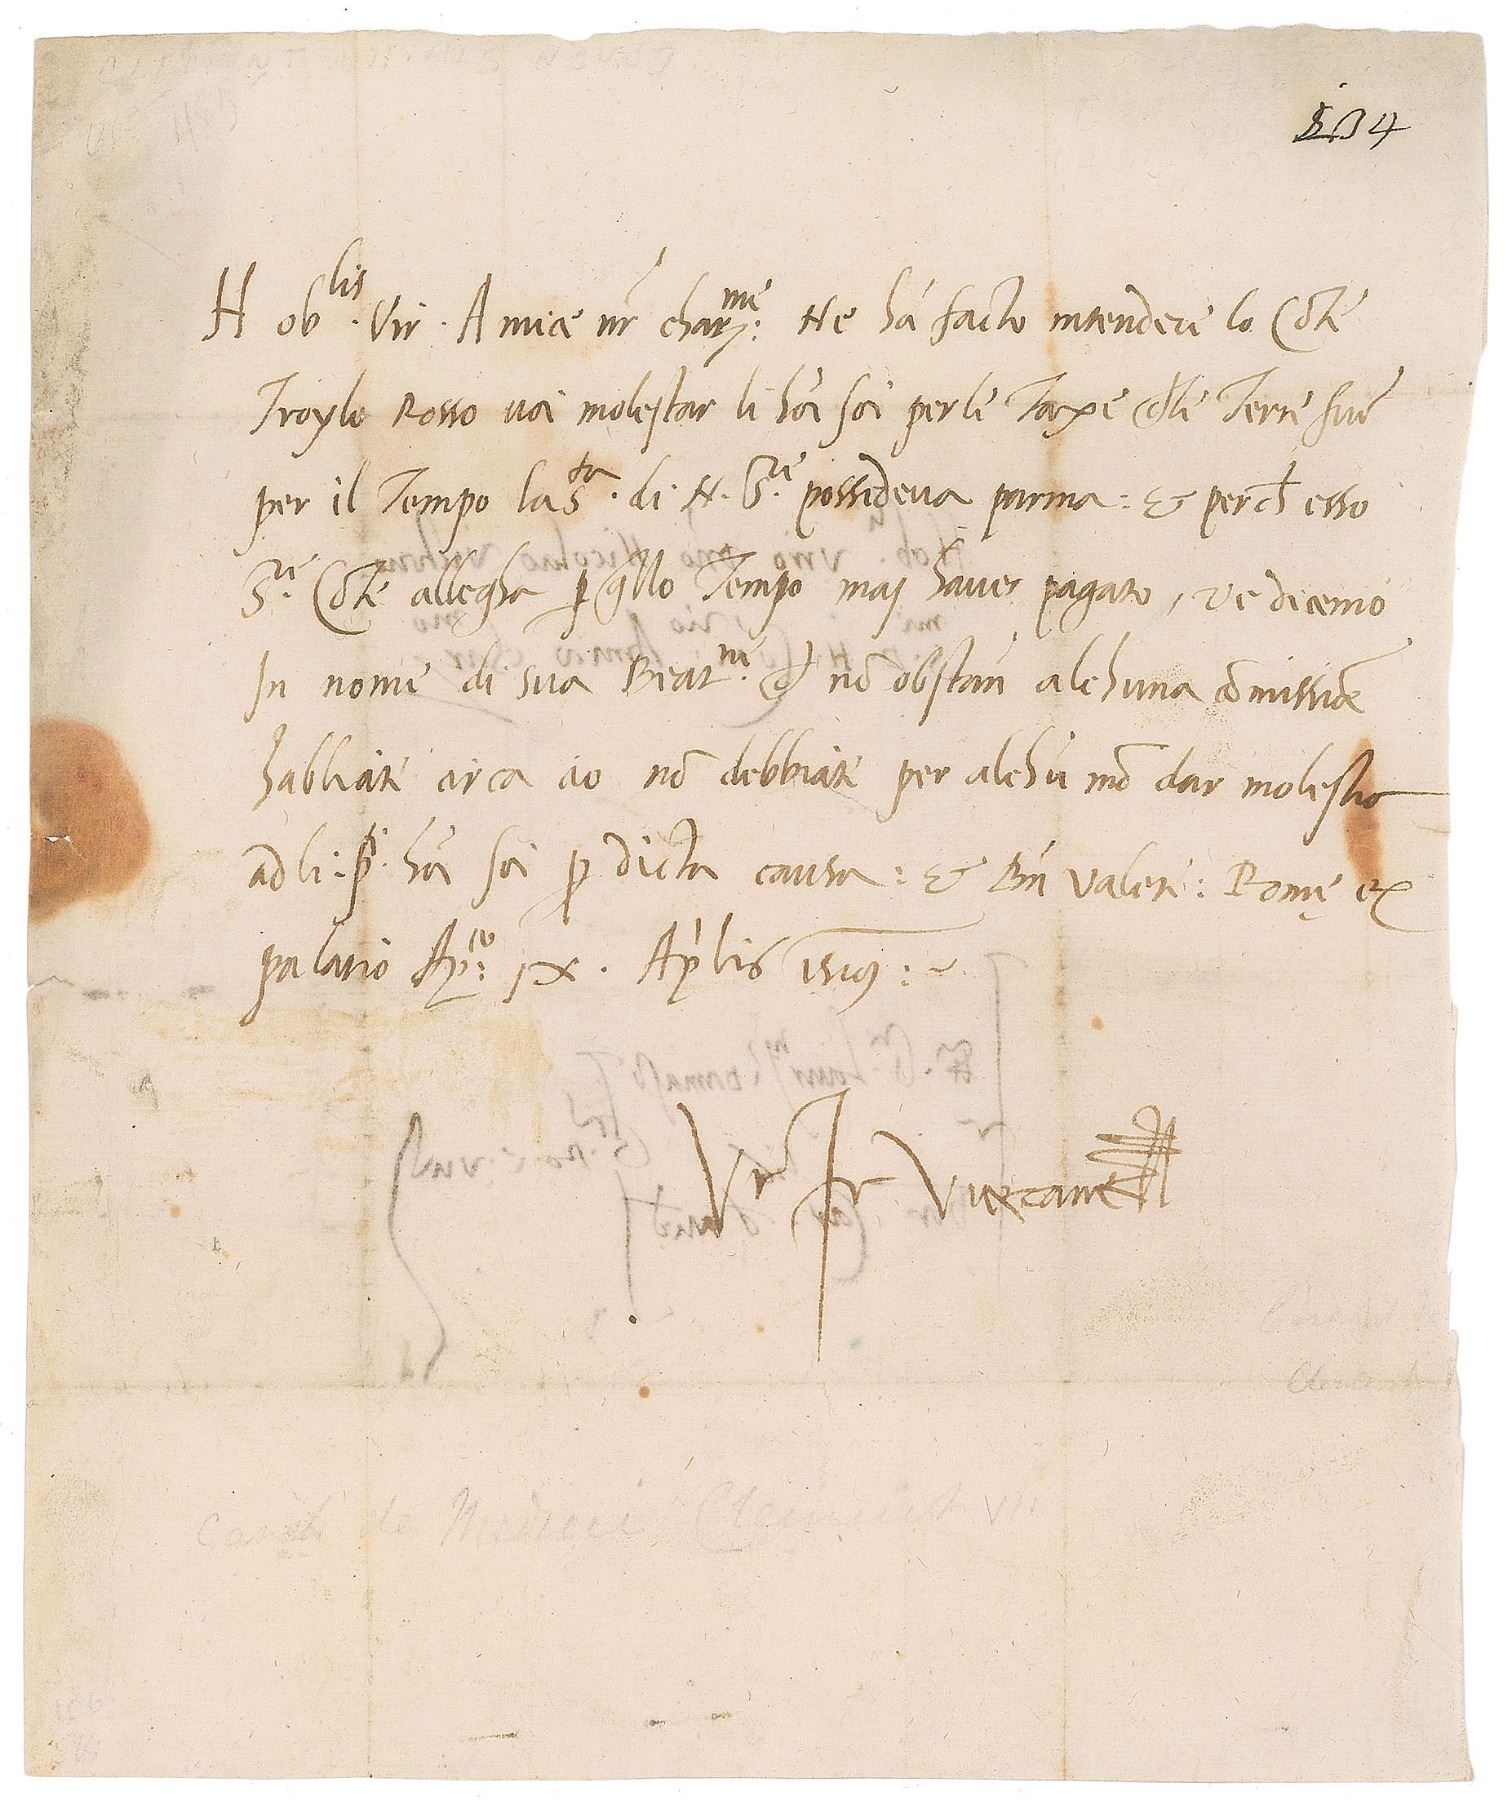 Nob^lis. Vir. Amice nr char^me: Ne há facto intendere lo Cōte
Troylo Rosso voi molestar li hōi soi per le Taxe dle Terre sue
per il Tempo la S^ta. di N. S.^re possideva parma: & perch esso
S.^re Cōte allegha p qllo Tempo maj haver pagato, ve dicemo
In nome di sua Beat.^ne ch nō obstāti alchuna cōmissiōe
habbiate circa cio nō debbiate per alchū mō dar molestia
ad li: p^ti. hōi soi p dicta causa: & Bn valete: Romę ex
palatio Ap^co: IX. Aplis
Vr Jr Vicecancell
Cardl de Medici Clement VII